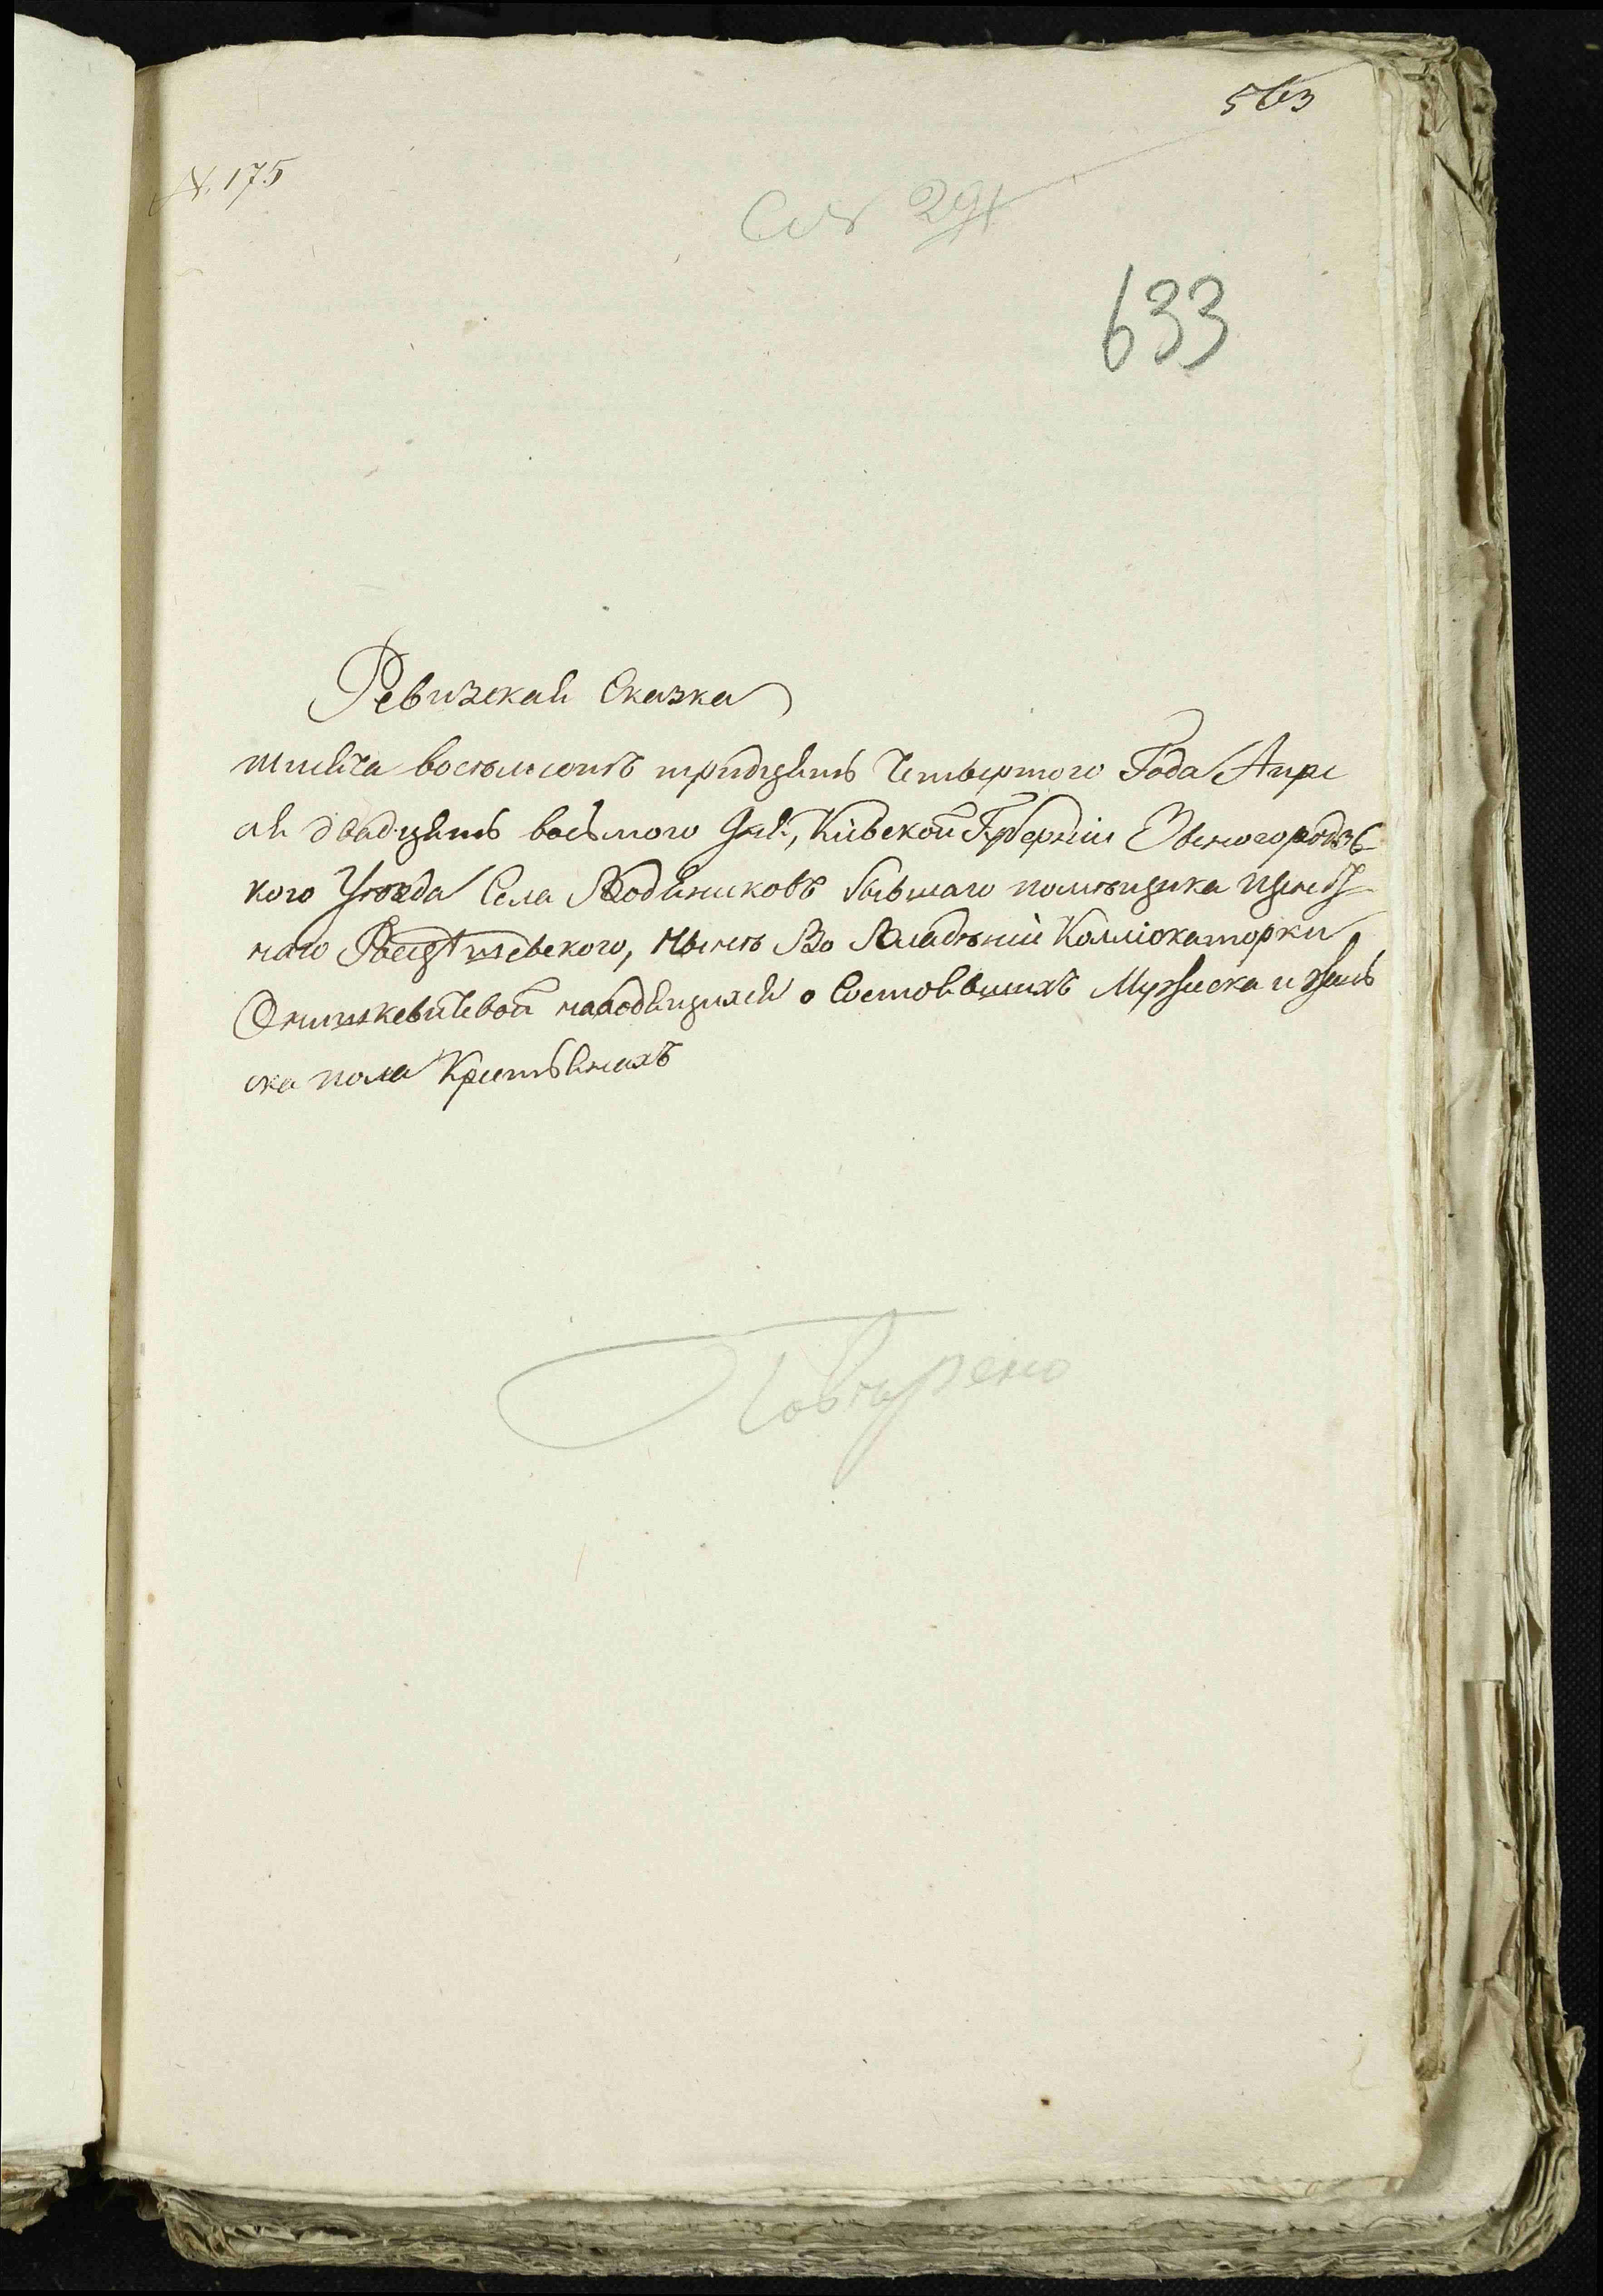 563
N. 175
291
633
Ревизская Сказка
тысяча восемьсотъ тридцять Четвертого Года Апре
ля двадцять восьмого дня, Кіевской Губерніи Звеногородзс-
кого Уѣзда Села Водяниковъ бывшаго помѣщика
него, нынѣ Во Владѣніи Коллiокаторки
Онишкевичевой находящихся о Состоявшихъ Мужеска и женъ
ска пола Крестьянахъ
Повѣрено